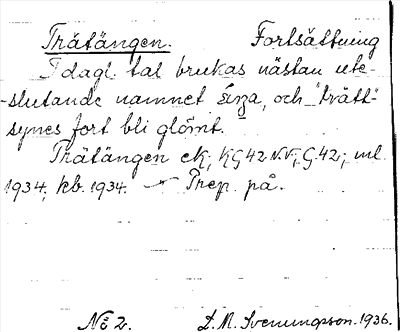 Trätängen. Fortsättning
I dagl. tal brukas nästan ute-
-slutande namnet änga, och "trätt"
synes fort bli glömt.
Trätängen ek, KG 42 N.V., G. 42; ml
1934, kb. 1934. — Prep. på.
No 2. L. M. Svenungsson. 1936.